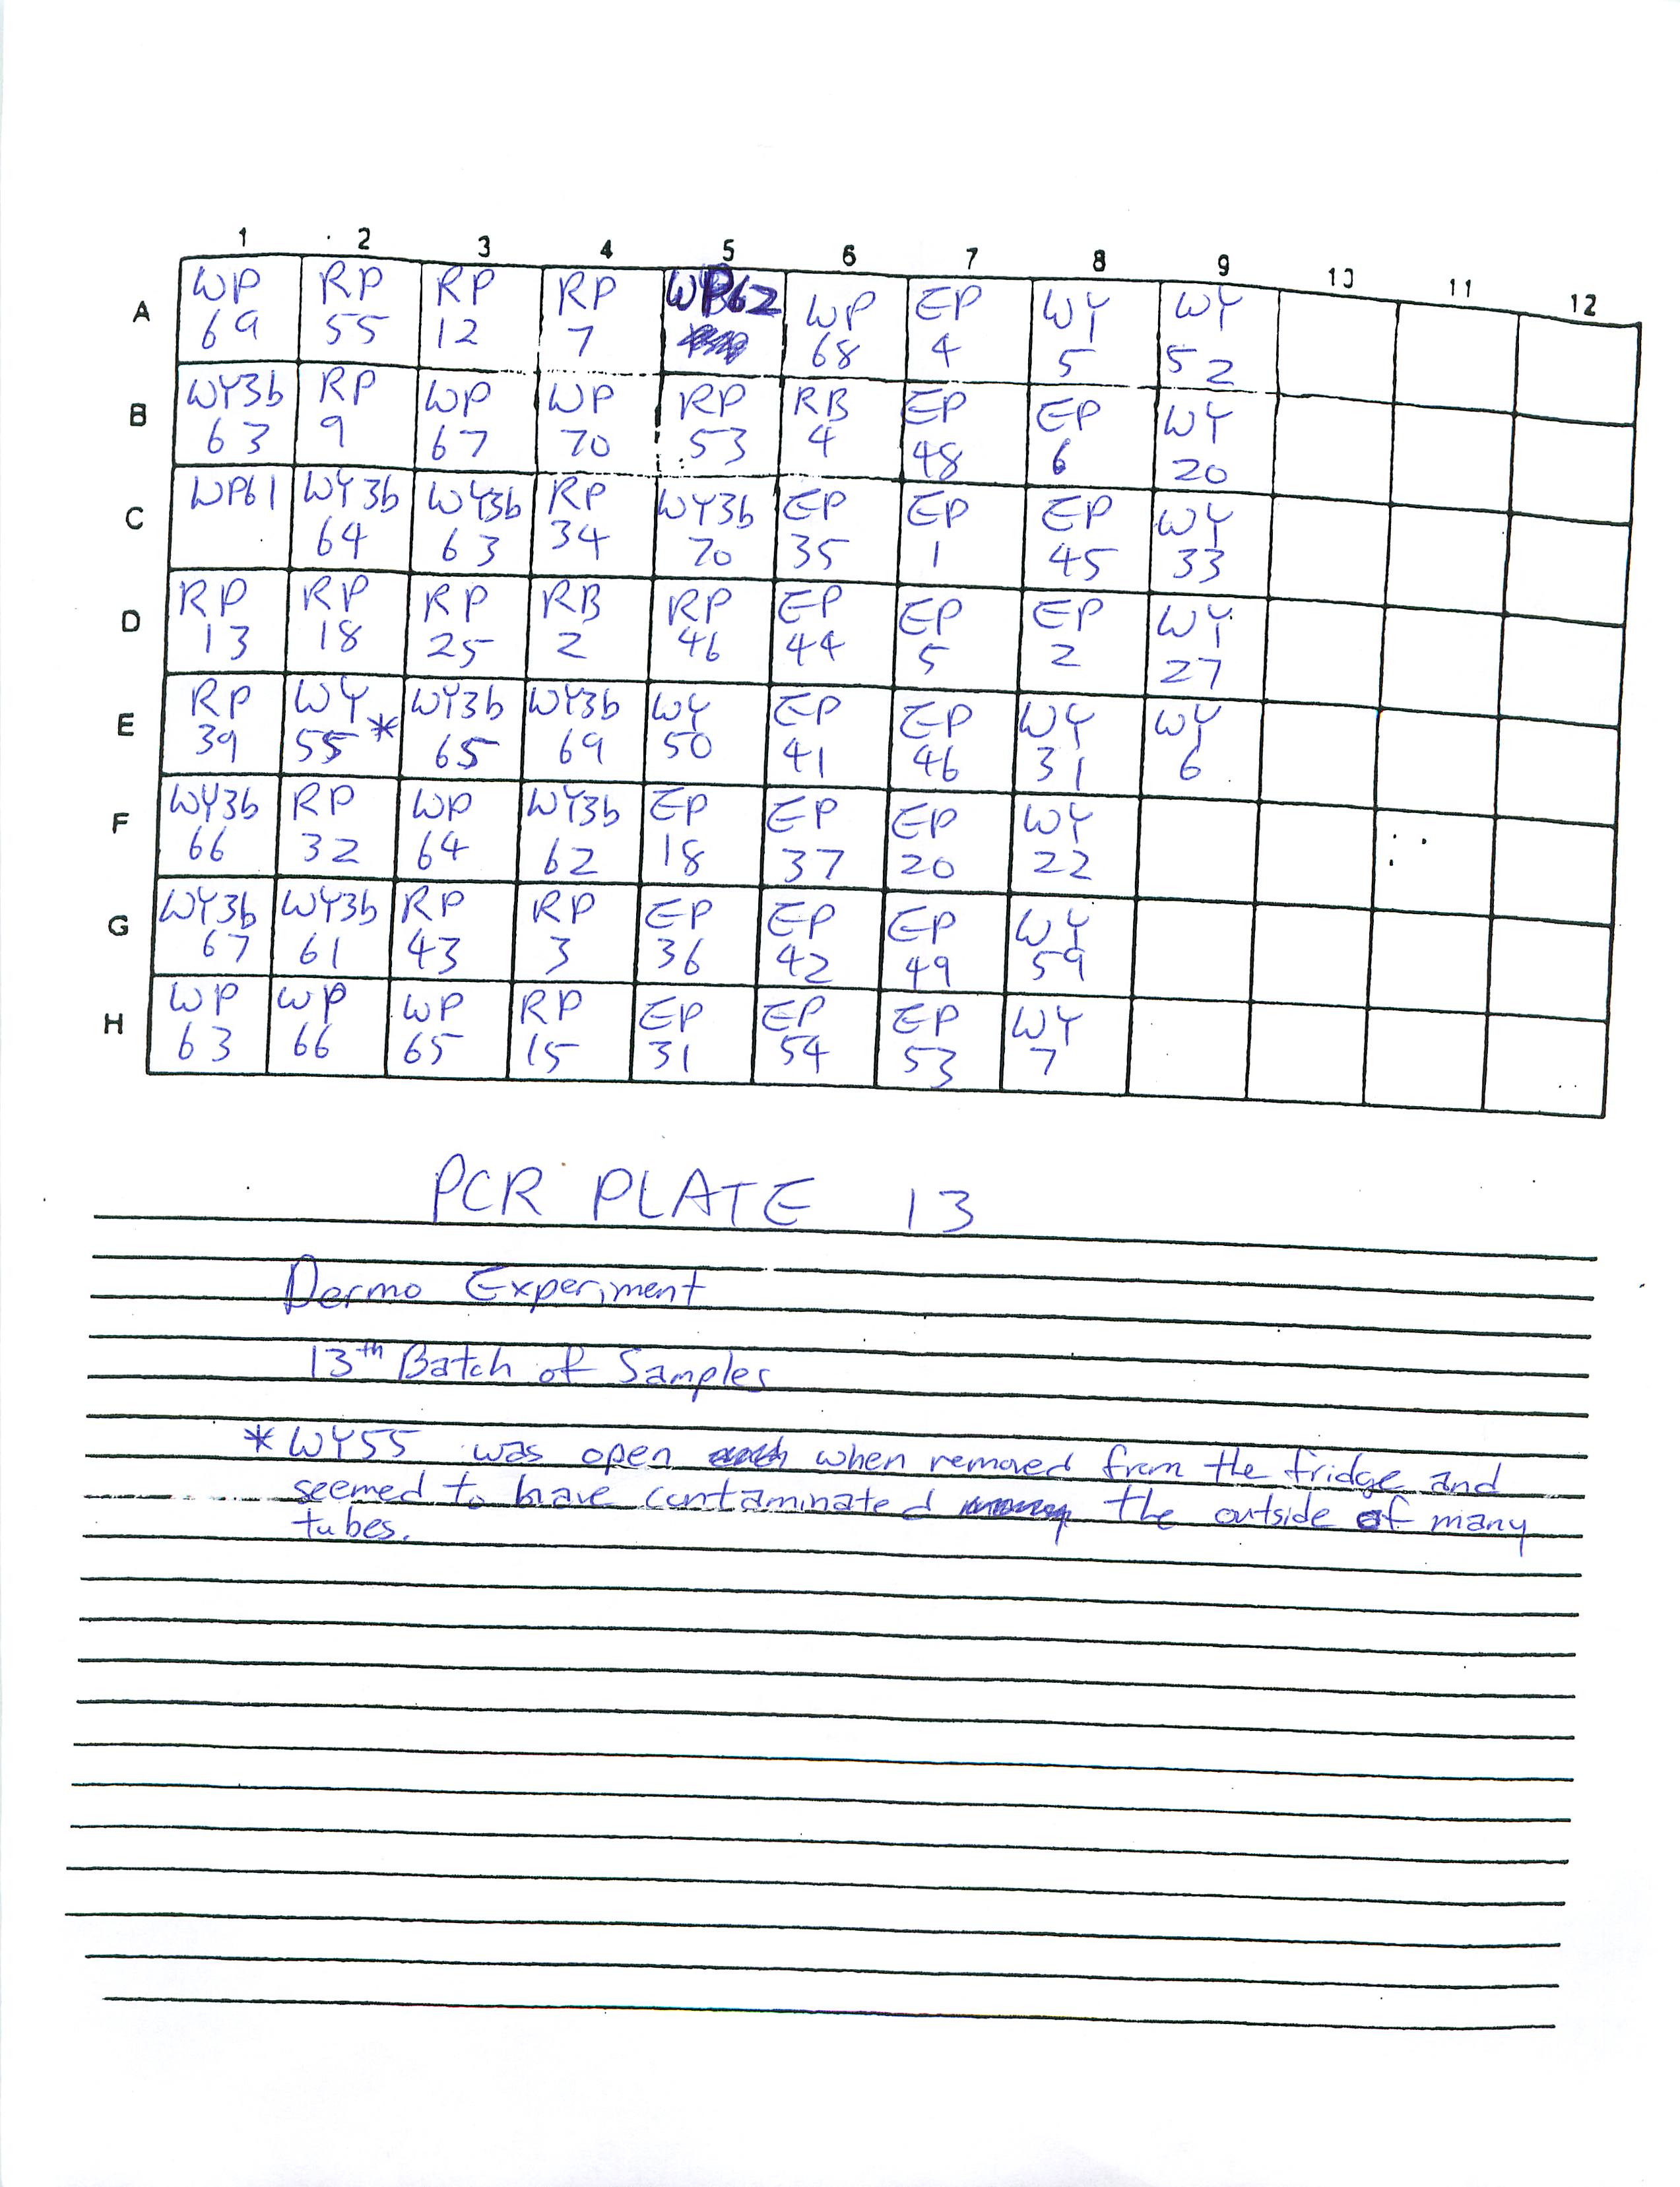 1 2 3 4 5 6 7 8 9 10 11 12
A WP RP RP RP WP62 WP EP WY WY
69 55 12 7 68 4 5 52
B WY3b RP WP WP RP RB EP EP WY
63 9 67 70 53 4 48 6 20
C WP61 WY3b WY3b RP WY3b EP EP EP WY
64 63 34 70 35 1 45 33
D RP RP RP RB RP EP EP EP WY
13 18 25 2 46 44 5 2 27
E RP WY * WY3b WY3b WY EP EP WY WY
39 55 65 69 50 41 46 31 6
F WY3b RP WP WY3b EP EP EP WY
66 32 64 62 18 37 20 22
G WY3b WY3b RP RP EP EP EP WY
67 61 43 3 36 42 49 59
H WP WP WP RP EP EP EP WY
63 66 65 15 31 54 53 7
PCR PLATE 13
Dermo Experiment
13th Batch of Samples
* WY55 was open when removed from the fridge and
seemed to have contaminated the outside of many
tubes.